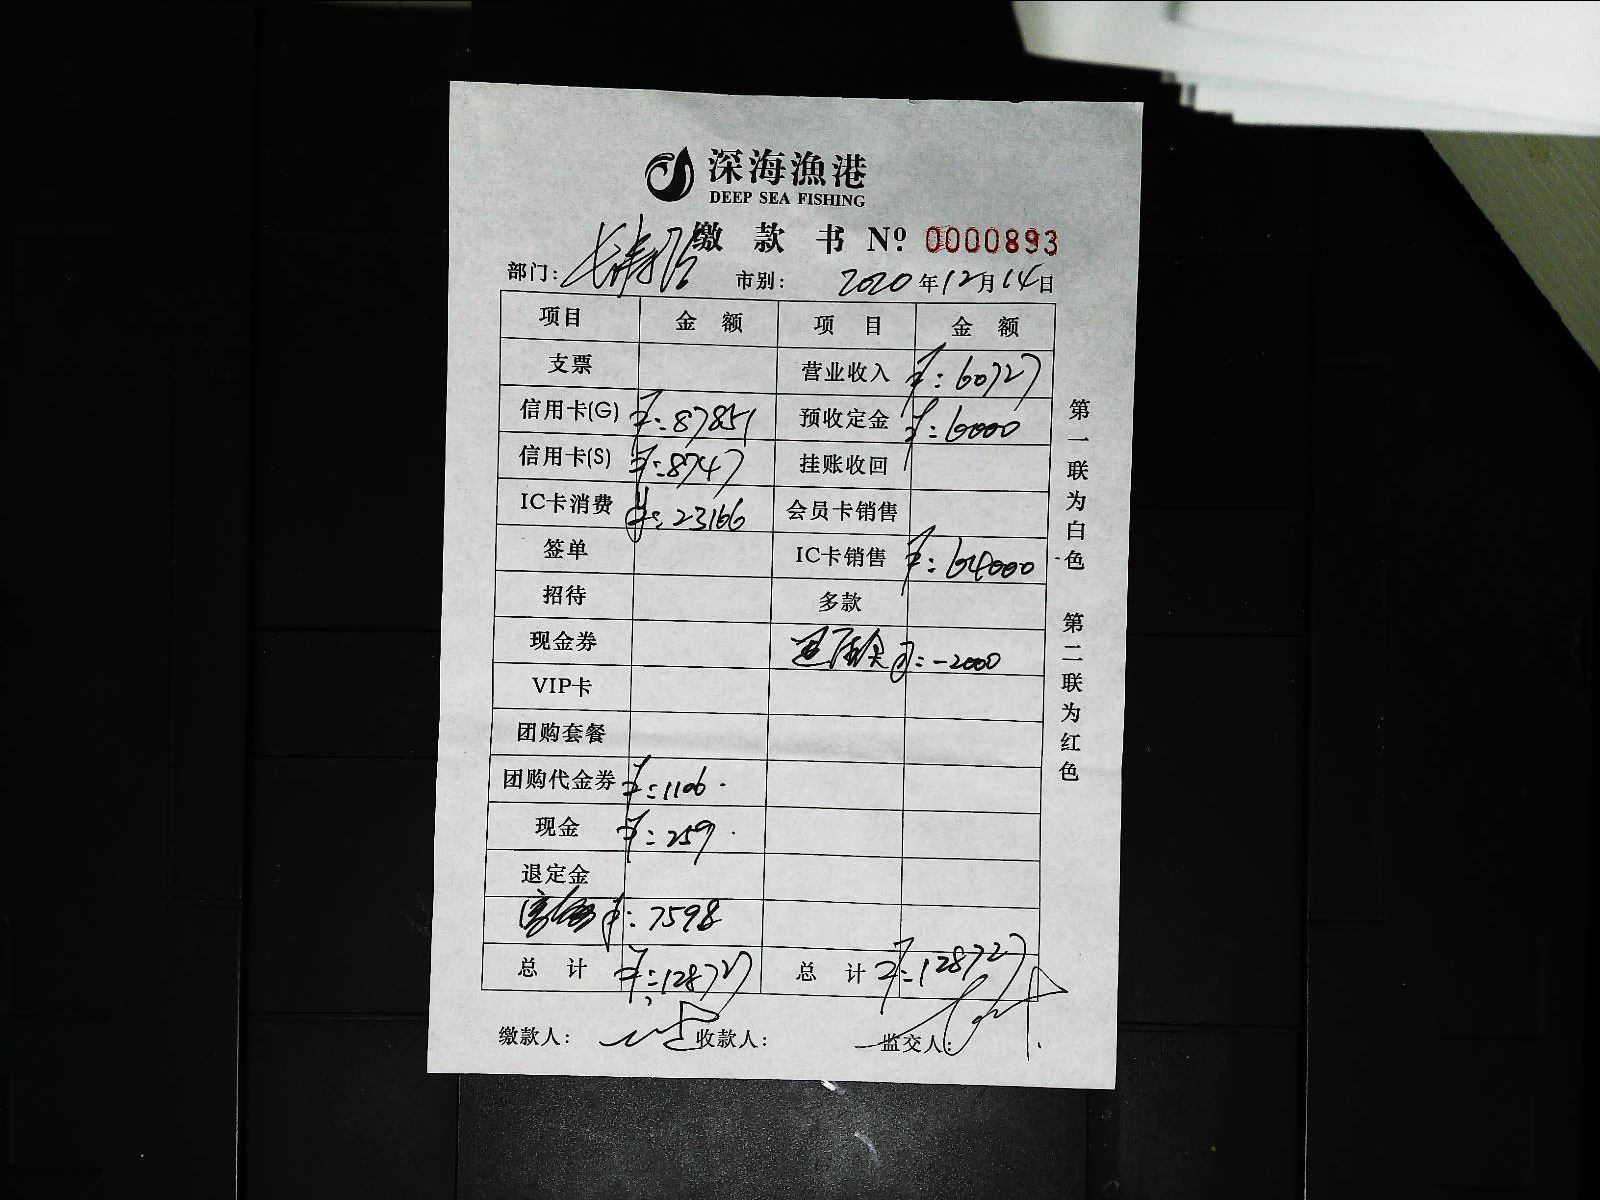 深海漁港
DEEP SEA FISHING
缴款书 Nº: 0000893
部门: 市别: 2020年12月14日
项目 金额 项目 金额
支票 营业收入 ¥:60727
信用卡(G) ¥:87851 预收定金 ¥:6000
信用卡(S) ¥:8747 挂账收回
IC卡消费 ¥:23166 会员卡销售
签单 IC卡销售 ¥:64000
招待 多款
现金券 ¥:-2000
VIP卡
团购套餐
团购代金券 ¥:1106
现金 ¥:259
退定金
¥:7598
总计 ¥:128727 总计 ¥:128727
缴款人: 收款人: 监交人:
第一联为白色 第二联为红色